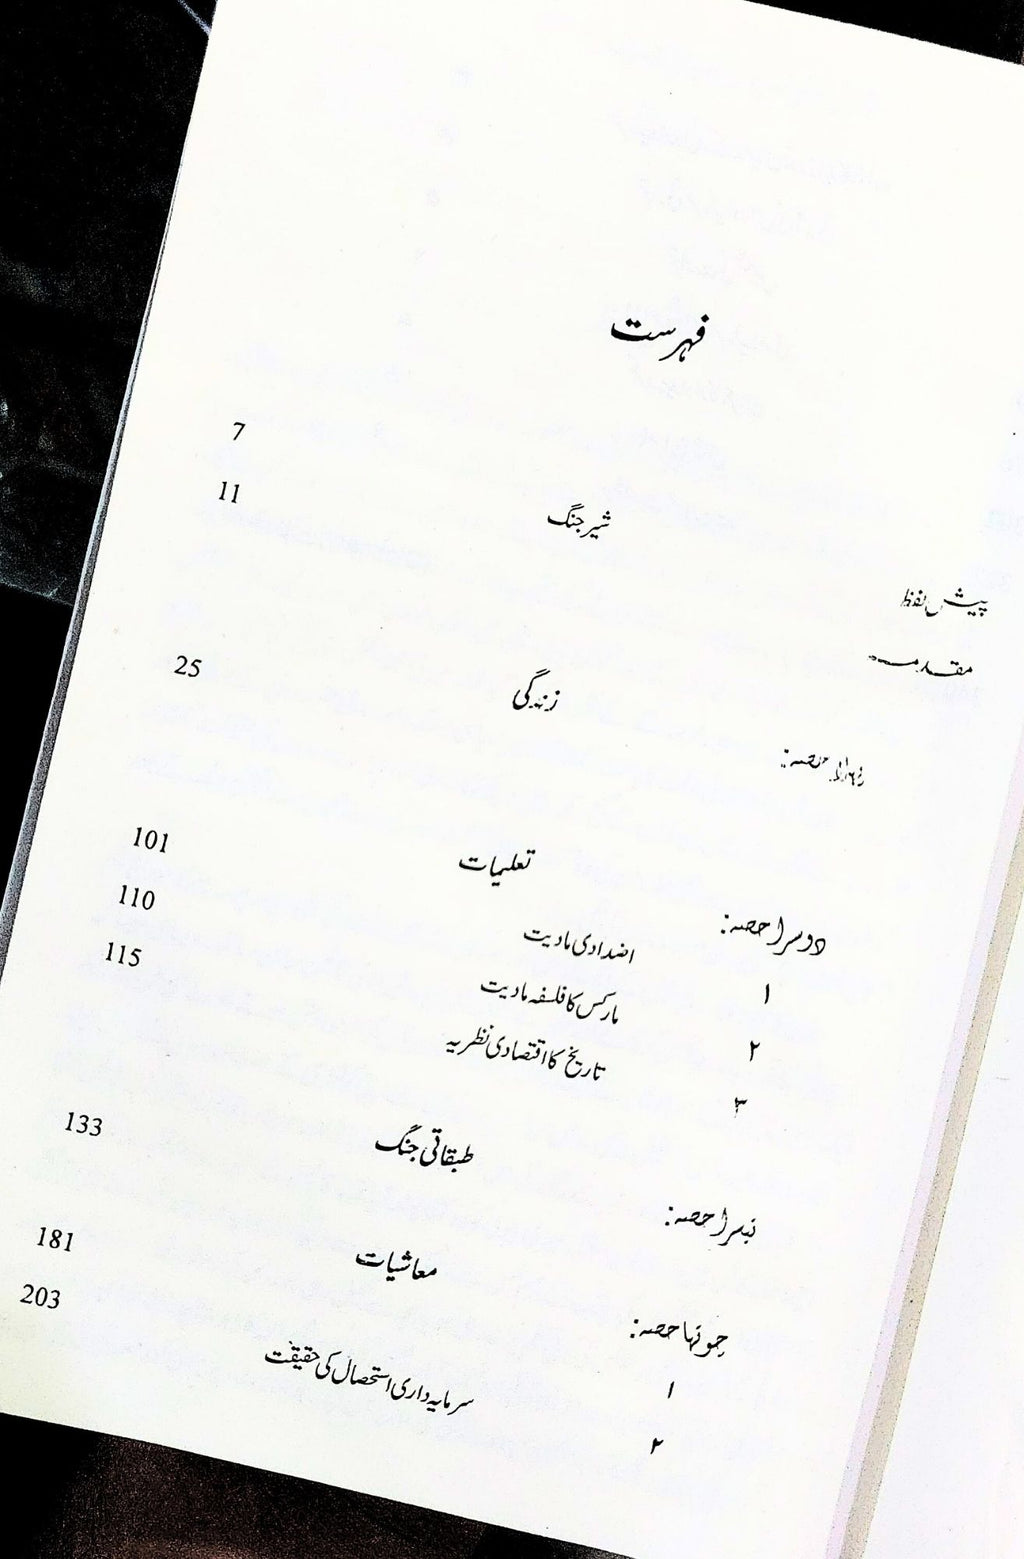 فہرست
پیش لفظ شیر جنگ 7
مقدمہ 11
پہلا حصہ: زندگی
25
دوسرا حصہ: تعلیمات
۱ اضدادی مادیت 101
۲ مارکس کا فلسفہ مادیت 110
۳ تاریخ کا اقتصادی نظریہ 115
تیسرا حصہ: طبقاتی جنگ
133
چوتھا حصہ: معاشیات
۱ 181
۲ سرمایہ داری استحصال کی حقیقت 203